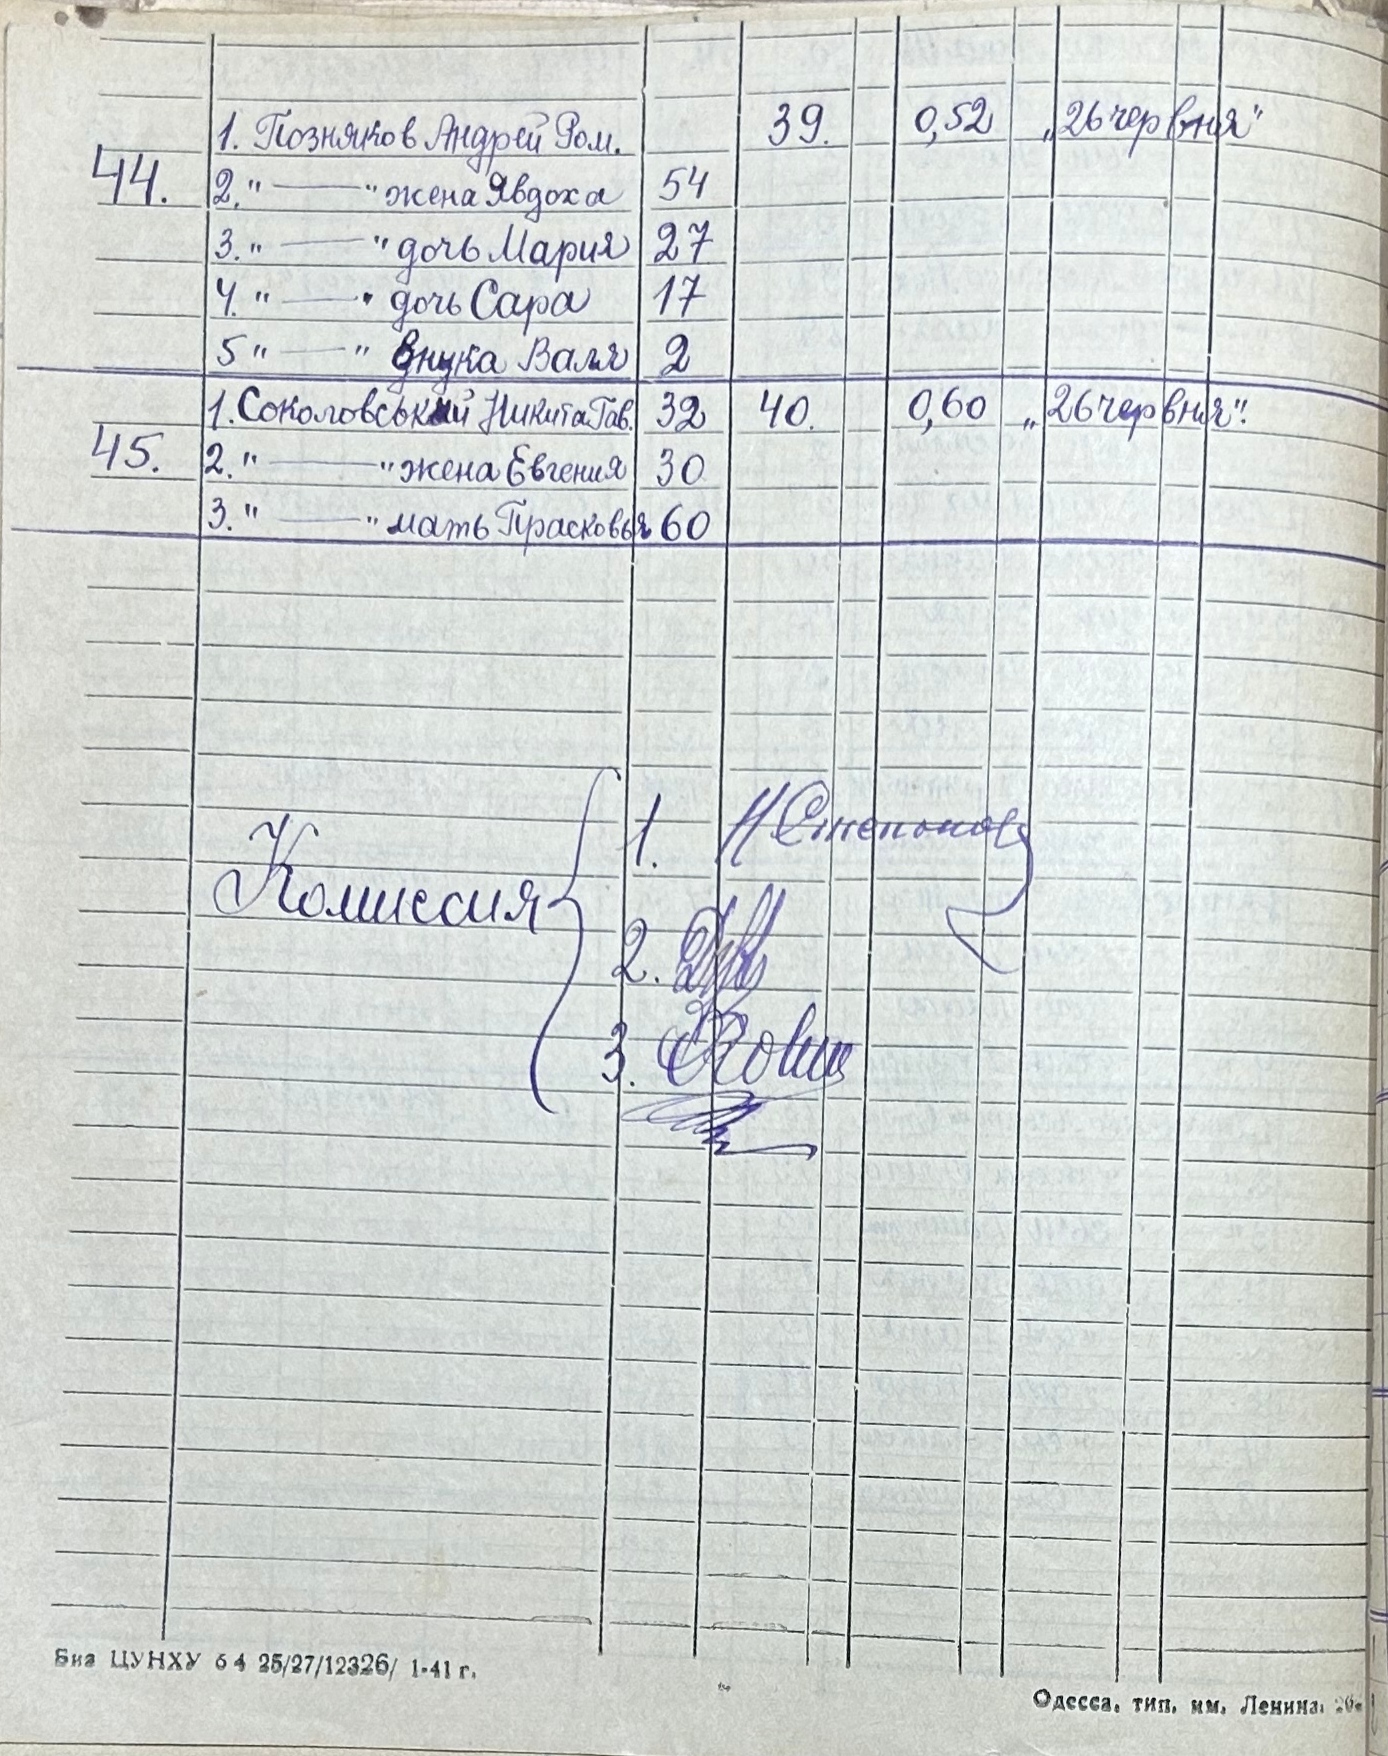 1. Позняков Андрей Ром. 39. 0,52 „26 червня"
44. 2. " —— " жена Явдоха 54
3. " —— " дочь Мария 27
4. " —— " дочь Сара 17
5 " —— " внука Валя 2
1. Соколовський Никита Гав. 32 40. 0,60 „26 червня".
45. 2. " —— " жена Евгения 30
3. " —— " мать Прасковья 60
1. Н Степанов
Комиссия
2.
3.
Биз ЦУНХУ 64 25/27/12326/ 1-41 г.
Одесса, тип. им. Ленина.